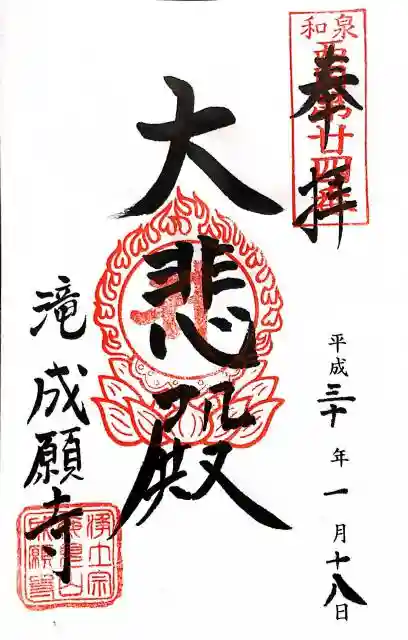 和泉
西国第廿四番
奉拝
平成三十年一月十八日
大悲殿
滝成願寺